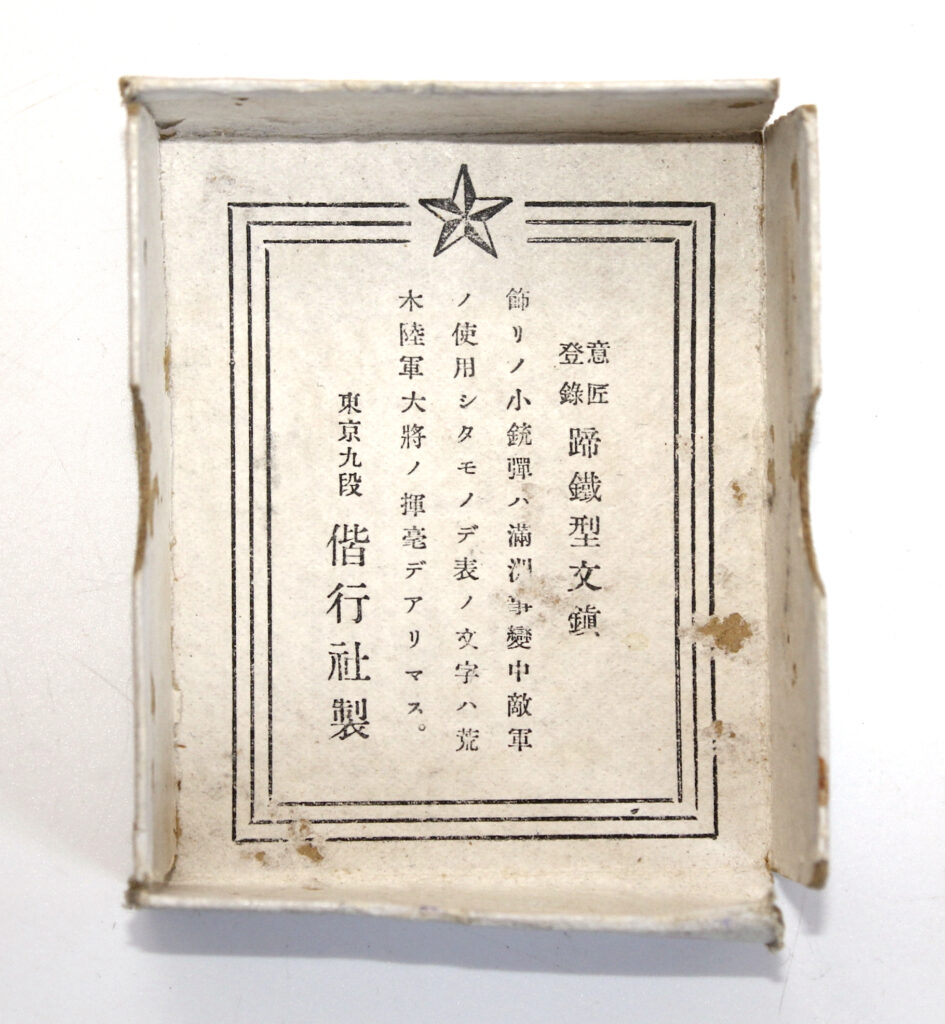 意匠
登錄
蹄鐵型文鎭
飾リノ小銃彈ハ滿洲事變中敵軍
ノ使用シタモノデ表ノ文字ハ荒
木陸軍大將ノ揮毫デアリマス。
東京九段
偕行社製